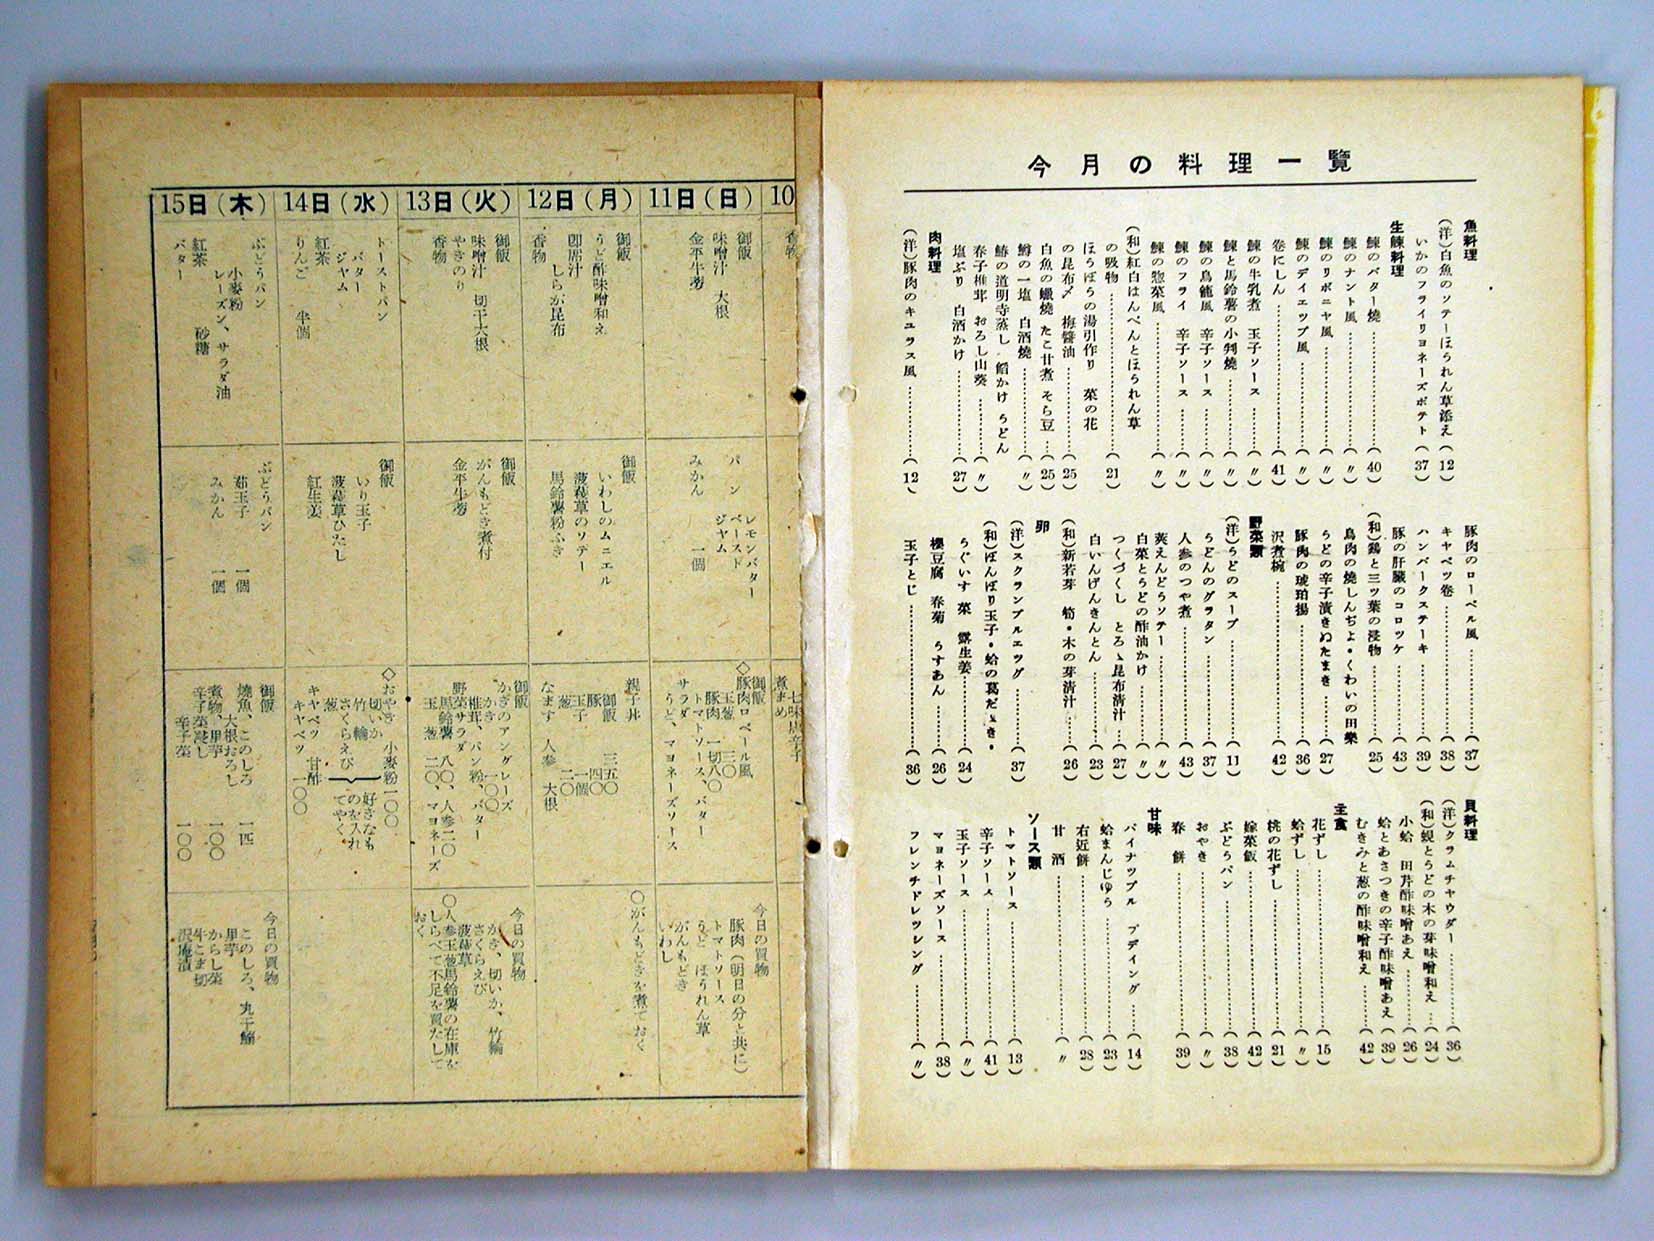 今月の料理一覽
魚料理
(洋)白魚のソテーほうれん草添え(12)
いかのフライリヨネーズポテト(37)
生鰊料理
鰊のバター燒(40)
鰊のナント風(〃)
鰊のリボニヤ風(〃)
鰊のデイエツプ風(〃)
卷にしん(41)
鰊の牛乳煮 玉子ソース(〃)
鰊と馬鈴薯の小判燒(〃)
鰊の烏龍風 辛子ソース(〃)
鰊のフライ 辛子ソース(〃)
鰊の惣菜風(〃)
(和)紅白はんぺんとほうれん草
の吸物(21)
ほうぼうの湯引作り 菜の花
の昆布〆 梅醤油(25)
白魚の蠟燒 たこ甘煮 そら豆(25)
鱒の一塩 白酒燒(〃)
鯖の道明寺蒸し 餡かけ うどん
春子椎茸 おろし山葵(〃)
塩ぶり 白酒かけ(27)
肉料理
(洋)豚肉のキユラス風(12)
豚肉のローベル風(37)
キヤベツ卷(38)
ハンバークステーキ(39)
豚の肝臓のコロツケ(43)
(和)鶏と三ツ葉の浸物(25)
鳥肉の燒しんぢよ・くわいの田樂
うどの辛子漬きぬたまき(27)
豚肉の琥珀揚(36)
沢煮椀(42)
野菜類
(洋)うどのスープ(11)
うどんのグラタン(37)
人參のつや煮(43)
莢えんどうソテー(〃)
白菜とうどの酢油かけ(〃)
つくづくし とろゝ昆布清汁(27)
白いんげんきんとん(23)
(和)新若芽 筍・木の芽清汁(26)
卵
(洋)スクランブルエツグ(37)
(和)ぼんぼり玉子・蛤の葛だゝき・
うぐいす菜 露生姜(24)
櫻豆腐 春菊 うすあん(26)
玉子とじ(36)
貝料理
(洋)クラムチヤウダー(36)
(和)蜆とうどの木の芽味噌和え(24)
小蛤 田芹酢味噌あえ(26)
蛤とあさつきの辛子酢味噌あえ(39)
むきみと葱の酢味噌和え(42)
主食
花ずし(15)
蛤ずし(〃)
桃の花ずし(21)
嫁菜飯(42)
ぶどうパン(38)
おやき(〃)
春餅(39)
甘味
パイナツプル プデイング(14)
蛤まんじゆう(23)
右近餅(28)
甘酒(〃)
ソース類
トマトソース(13)
辛子ソース(41)
玉子ソース(〃)
マヨネーズソース(38)
フレンチドレツシング(〃)
10
香物
七味唐辛子
煮まめ
11日(日)
御飯
味噌汁 大根
金平牛蒡
パン レモンバター
ペースト
ジヤム
みかん 一個
御飯
◇豚肉ロベール風
玉葱 三〇
豚肉 一切八〇
トマトソース、バター
サラダ
うど、マヨネーズソース
今日の買物
豚肉(明日の分と共に)
トマトソース
うど ほうれん草
がんもどき
いわし
12日(月)
御飯
うど酢味噌和え
卽席汁 しらが昆布
香物
御飯
いわしのムニエル
菠薐草のソテー
馬鈴薯粉ふき
親子丼
御飯 三五〇
豚 四〇
玉子 一個
葱 二〇
なます 人參 大根
〇がんもどきを煮ておく
13日(火)
御飯
味噌汁 切干大根
やきのり
香物
御飯
がんもどき煮付
金平牛蒡
御飯
かきのアングレーズ
かき 一〇〇
椎茸、パン粉、バター
野菜サラダ
馬鈴薯 八〇、人參二〇
玉葱 二〇、マヨネーズ
今日の買物
かき、切いか、竹輪
さくらえび
菠薐草
〇人參玉葱馬鈴薯の在庫を
しらべて不足を買たして
おく
14日(水)
トーストパン
バター
ジヤム
紅茶
りんご 半個
御飯
いり玉子
菠薐草ひたし
紅生姜
◇おやき 小麥粉一〇〇
切いか
竹輪
さくらえび
葱
好きなも
のを入れ
てやく
キヤベツ 甘酢
キヤベツ 一〇〇
15日(木)
ぶどうパン
小麥粉
レーズン、サラダ油
紅茶 砂糖
バター
ぶどうパン
茹玉子 一個
みかん 一個
御飯
燒魚、このしろ 一匹
大根おろし
煮物、里芋 一〇〇
辛子菜浸し
辛子菜 一〇〇
今日の買物
このしろ、丸干鰯
里芋
からし菜
牛こま切
沢庵漬